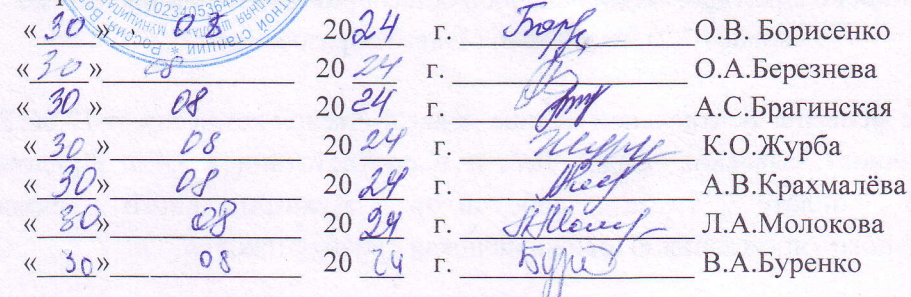 «30» 08 2024 г. О.В. Борисенко
«30» 08 2024 г. О.А.Березнева
«30» 08 2024 г. А.С.Брагинская
«30» 08 2024 г. К.О.Журба
«30» 08 2024 г. А.В.Крахмалёва
«30» 08 2024 г. Л.А.Молокова
«30» 08 2024 г. В.А.Буренко